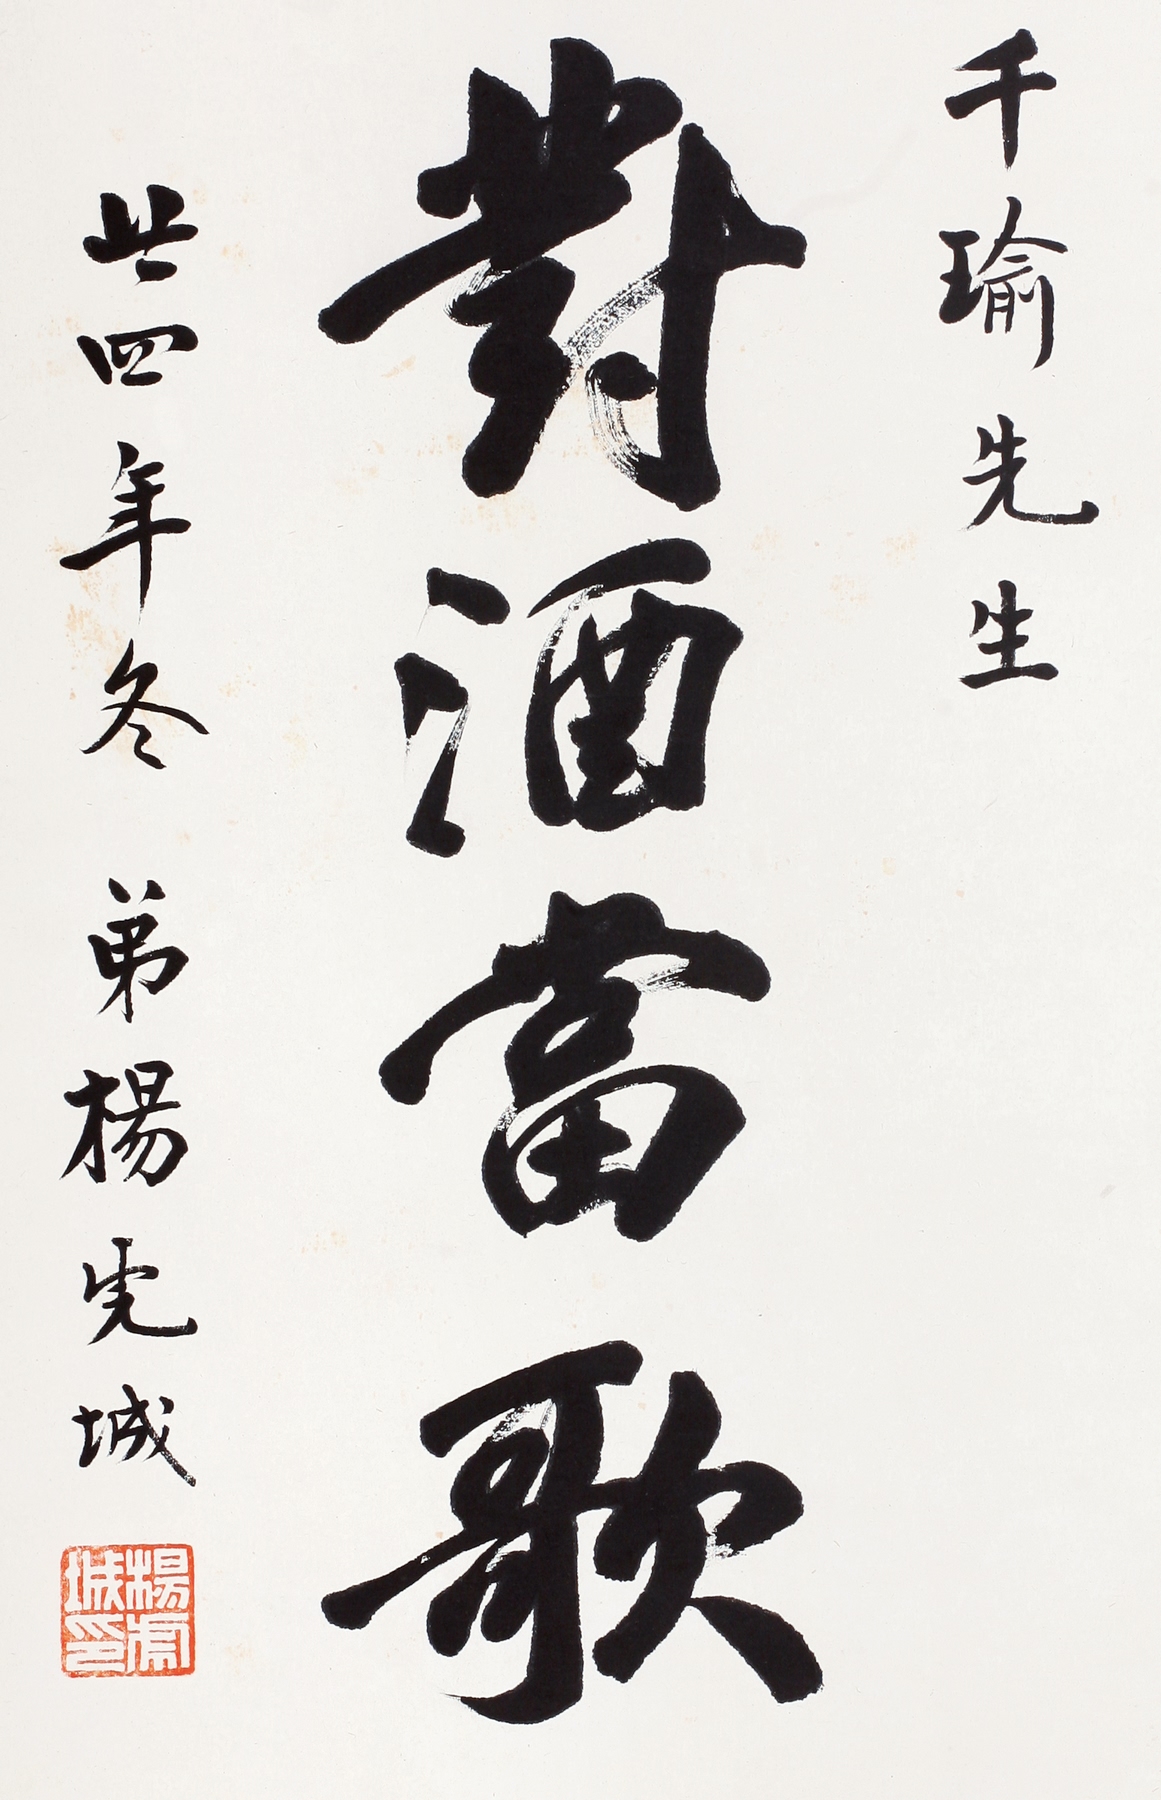 千瑜先生
對酒當歌
廿四年冬 弟楊虎城
楊虎城印